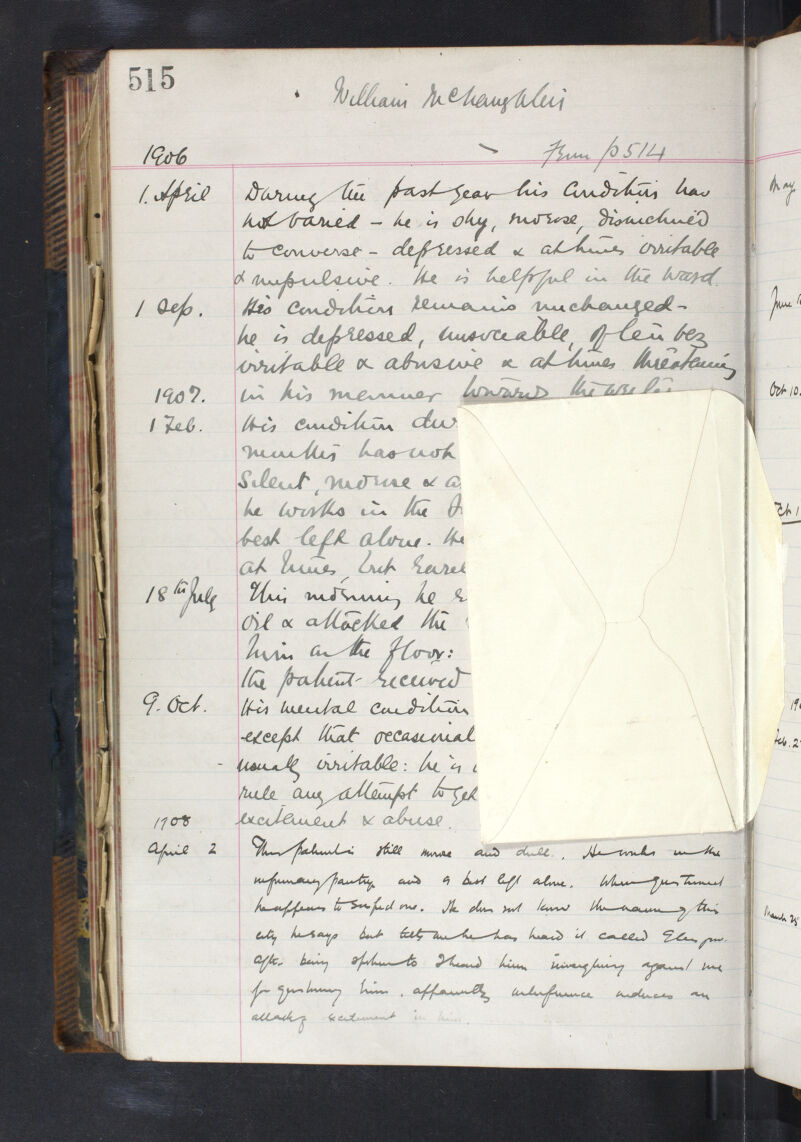 515
William McLaughlin
1906
From p 514
1. April During the past year his condition has
not varied – he is shy, morose, disinclined
to converse – depressed & at times irritable
& impulsive. He is helpful in the ward.
1 Sep. His condition remains unchanged –
he is depressed, unsociable, often very
irritable & abusive & at times threatening
1907. in his manner towards the
1 Feb. His condition
months has not
silent, morose &
he works in the
best left alone.
at times, but
18th July This morning he
oil & attacked the
him on the floor:
the patient received
9. Oct. His mental condition
except that
usually irritable: he is
rule any attempt to get
1908 excitement & abuse.
April 2 This patient is still morose and dull. He works in the
infirmary pantry and is best left alone. When questioned
he appears to suspect one. He does not know the name of this
city he says but tells me he has heard it called Glasgow.
After being spoken to I heard him inveighing against me
for questioning him. Apparently interference induces an
attack of excitement in him.
May
June
Oct 10.
Oct 1
Feb. 2
March 25